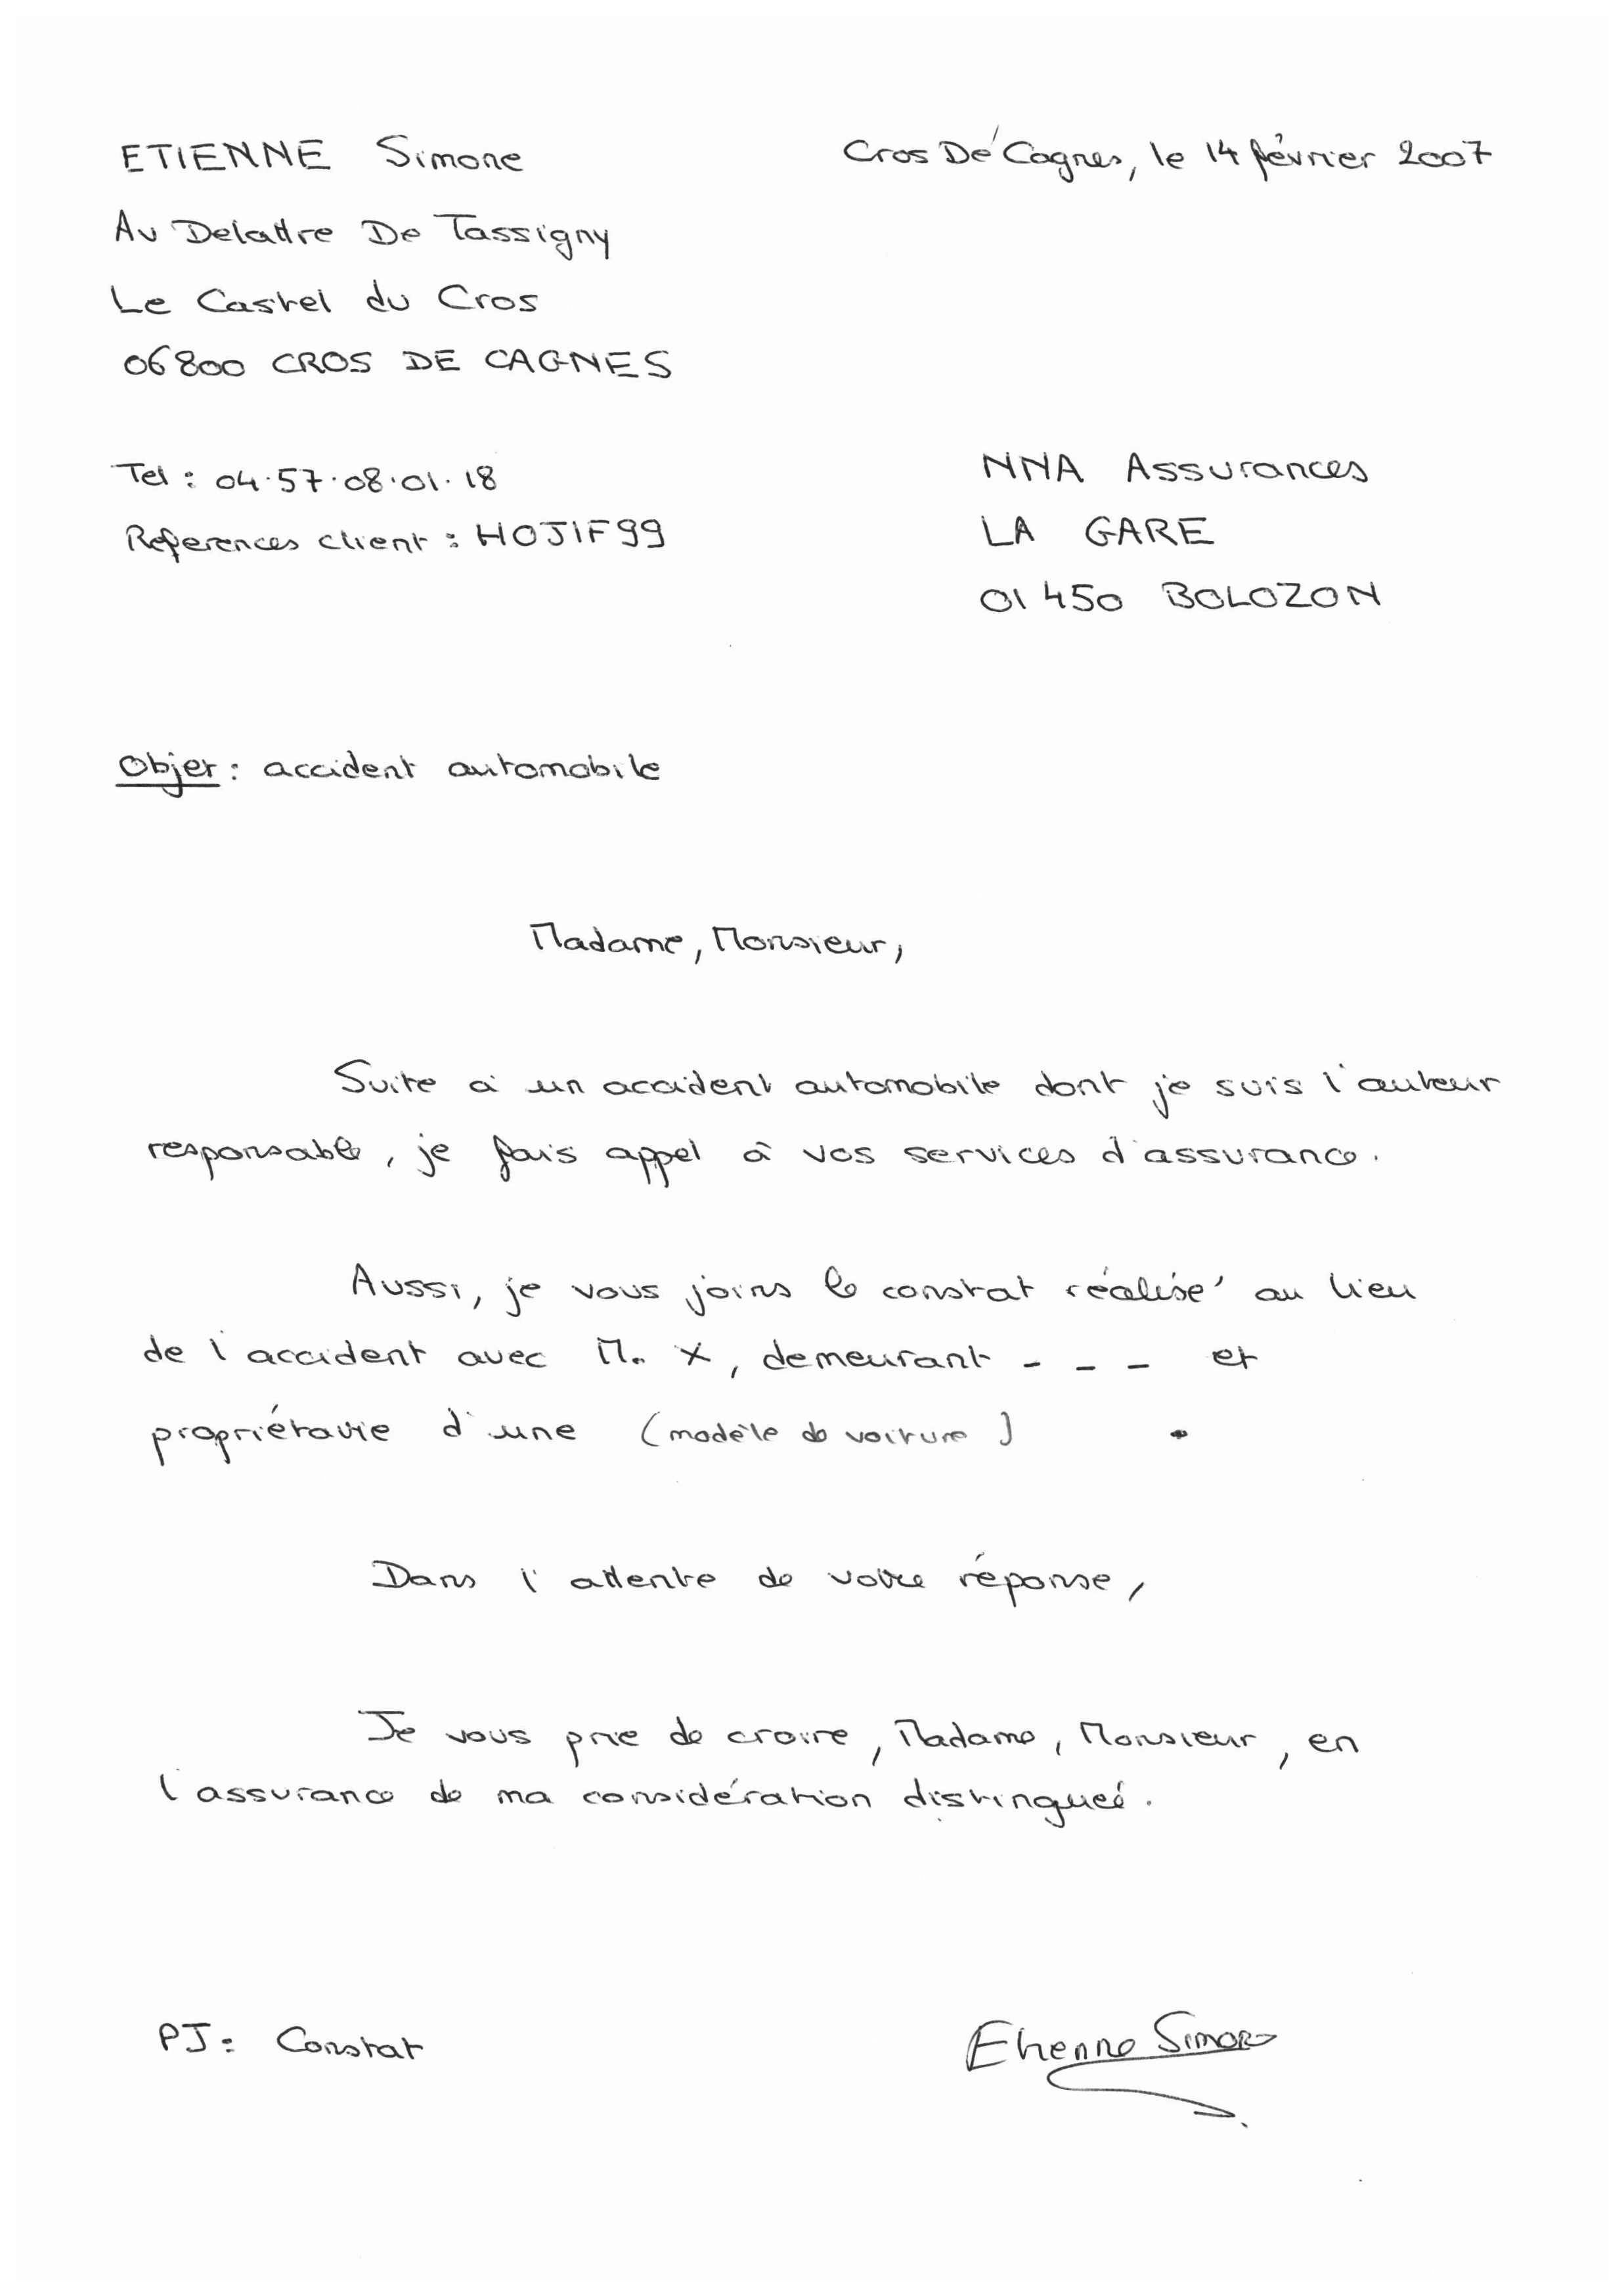 ETIENNE Simone
Cros De Cagnes, le 14 février 2007
Av Delattre De Tassigny
Le Castel du Cros
06800 CROS DE CAGNES
Tel : 04.57.08.01.18
References client : HOJIF99
NNA Assurances
LA GARE
01450 BOLOZON
Objet : accident automobile
Madame, Monsieur,
Suite à un accident automobile dont je suis l'auteur
responsable, je fais appel à vos services d'assurance.
Aussi, je vous joins le constat réalisé au lieu
de l'accident avec M. X, demeurant - - - et
propriétaire d'une (modèle de voiture) .
Dans l'attente de votre réponse,
Je vous prie de croire, Madame, Monsieur, en
l'assurance de ma considération distinguée.
PJ : Constat
Etienne Simone